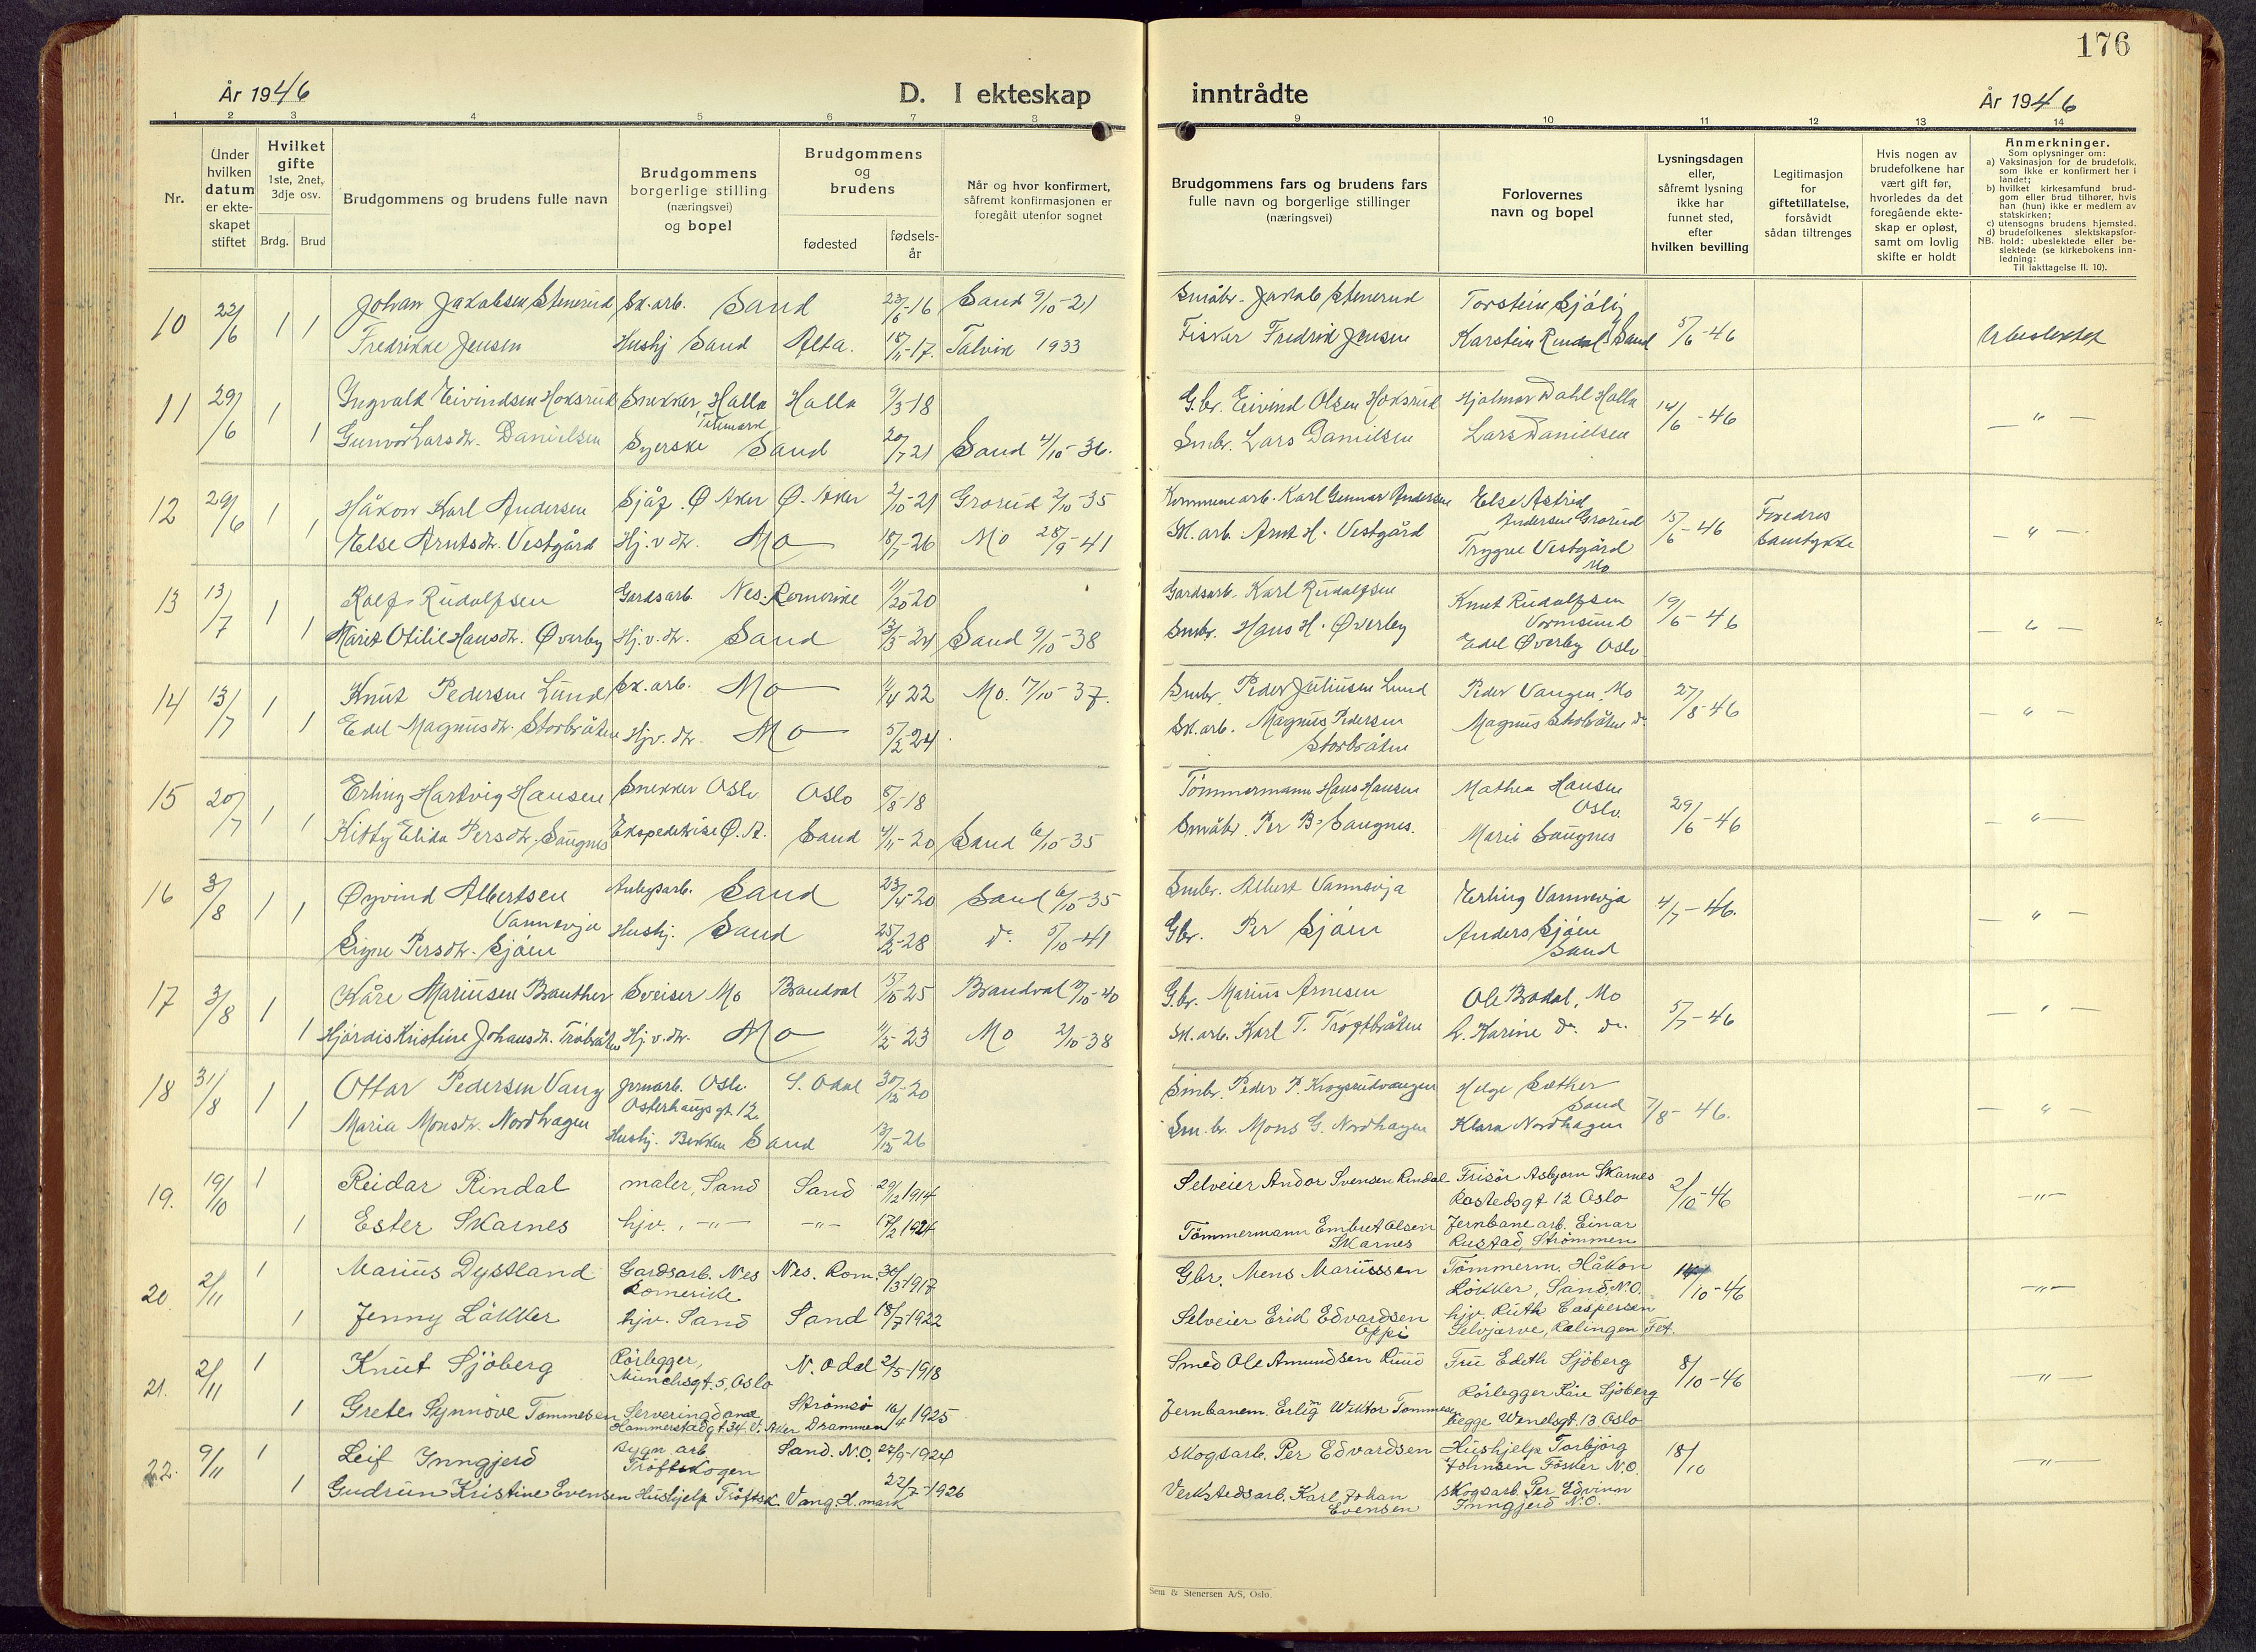 176
År 1946
D. I ekteskap
inntrådte
År 1946
1 2 3 4 5 6 7 8 9 10 11 12 13 14
Nr.
Under hvilken datum er ekteskapet stiftet
Hvilket gifte 1ste, 2net, 3dje osv.
Brdg. Brud
Brudgommens og brudens fulle navn
Brudgommens borgerlige stilling (næringsvei) og bopel
Brudgommens og brudens
fødested
fødselsår
Når og hvor konfirmert, såfremt konfirmasjonen er foregått utenfor sognet
Brudgommens fars og brudens fars fulle navn og borgerlige stillinger (næringsvei)
Forlovernes navn og bopel
Lysningsdagen eller, såfremt lysning ikke har funnet sted, efter hvilken bevilling
Legitimasjon for giftetillatelse, forsåvidt sådan tiltrenges
Hvis nogen av brudefolkene har vært gift før, hvorledes da det foregående ekteskap er opløst, samt om lovlig skifte er holdt
Anmerkninger.
Som oplysninger om:
a) Vaksinasjon for de brudefolk, som ikke er konfirmert her i landet;
b) hvilket kirkesamfund brudgom eller brud tilhører, hvis han (hun) ikke er medlem av statskirken;
c) utensogns brudens hjemsted.
d) brudefolkenes slektskapsforhold: ubeslektede eller beslektede (se kirkebokens innledning:
NB.
Til iakttagelse II. 10).
10 22/6 1 1 Johan Jakobsen Stenerud Sk.arb. Sand 23/6-16 Sand 9/10-21 Småbr. Jakob Stenerud Torstein Sjölig
Fredrikke Jensen Hushj Sand Alta. 18/11-17. Talvik 1933 Fisker Fredrik Jensen Karstein Rindal Sand 5/6-46 Ubeslektet
11 29/6 1 Ingvald Eivindsen Hoksrud Snekker Halla Telemark Halla 9/3-18 G.br. Eivind Olsen Hoksrud Hjalmar Dahl Halla 14/6-46
1 Gunvor Larsdtr. Danielsen Syerske Sand 20/7 21 Sand 4/10-36. Smbr. Lars Danielsen Lars Danielsen — " —
12 29/6 1 Håkon Karl Andersen Sjåf. Ø Aker Ø. Aker 2/10-21 Grorud 2/10-35 Kommunearb. Karl Gunnar Andersen Else Astrid Andersen Grorud
1 Else Arntsdtr. Vestgård Hj.v.dtr. Mo 18/7-26 Mo 28/9-41 Sk.arb. Arnt H. Vestgård Trygve Vestgård Mo 15/6-46 Foredres Samtykke — " —
13 13/7 1 Rolf Rudolfsen Gardsarb. Nes. Romerike 11/10-20 Gardsarb. Karl Rudolfsen Knut Rudolfsen Vormsund
1 Marit Otilie Hansdtr. Øverby Hj.v.dtr. Sand 13/3-24 Sand 9/10-38 Smbr. Hans H. Øverby Edel Øverby Oslo 19/6-46 — " —
14 13/7 1 Knut Pedersen Lund Sk.arb. Mo 11/4 22 Mo. 17/10-37. Smbr. Peder Juliusen Lund Peder Vangen Mo
1 Edel Magnusdtr. Storbråten Hjv.dtr. Mo 5/2-24 Sk.arb. Magnus Pedersen Storbråten Magnus Storbråten do 27/8-46 — " —
15 20/7 1 Erling Hartvig Hansen Snekker Oslo Oslo 8/8-18 Tömmermann Hans Hansen Mathea Hansen Oslo.
1 Kitty Elida Persdtr. Saugnes Ekspeditrise Ø.A. Sand 4/11-20 Sand 6/10-35 Småbr. Per B. Saugnes. Marie Saugnes 29/6-46 — " —
16 3/8 1 Øyvind Albertsen Vannevja Anlegsarb. Sand 23/4-20 Sand 6/10-35 Smbr. Albert Vannevja Erling Vannevja
1 Signe Persdtr. Sjöen Hushj. Sand 25/2-28 do 5/10-41 Gbr. Per Sjöen Anders Sjöen Sand 4/7-46. — " —
17 3/8 1 Kåre Mariusen Brauther Sveiser Mo Brandval 15/10-25 Brandval /10-40 G.br. Marius Arnesen Ole Brodal, Mo
1 Hjördis Kristine Johansdtr. Tröbråten Hj.v.dtr. Mo 11/2-23 Mo 2/10-38 Sk.arb. Karl T. Trögtbråten Karine do do. 5/7-46 — " —
18 31/8 1 Ottar Pedersen Vang Jernarb. Oslo Osterhaugsgt. 12. S. Odal 30/12-20 Smbr. Peder P. Krogsrudvangen Helge Sæther Sand
1 Maria Monsdtr. Nordhagen Hushj. Bekken Sand 13/12-26 Sm.br. Mons G. Nordhagen Klara Nordhagen 7/8-46. — " —
19. 19/10 1 Reidar Rindal maler, Sand Sand 29/12 1914 Selveier Andor Svensen Rindal Frisör Asbjørn Skarnes Rostedsgt 12 Oslo 2/10-46
1 Ester Skarnes hjv. -"- -"- 17/2 1924 Tömmermann Embret Olsen Skarnes Jernbanearb. Einar Rustad, Strömmen -"-
20. 2/11 1 Marius Dystland Gardsarb. Nes Romerike Nes. Rom. 30/3 1917 Gbr. Mens Mariussen Tömmerm. Håkon Lökker, Sand. N.O. /10-46
1 Jenny Lökker hjv. Sand Sand 18/7-1922 Selveier Erik Edvardsen Oppi hjv. Ruth Caspersen Selvjarve, Rælingen, Fet. -"-
21. 2/11 1 Knut Sjöberg Rörlegger, Munchsgt. 5, Oslo N. Odal 2/5-1918 Smed Ole Amundsen Ruud Fru Edith Sjöberg
1 Grete Synnöve Tommesen Serveringsdame Hammerstadgt 34. V. Aker Strömsö Drammen 16/4 1925 Jernbanem. Erling Wiktor Tommesen Rörlegger Kåre Sjöberg begge Wenelsgt. 13. Oslo 8/10-46 -"-
22. 9/11 1 Leif Inngjerd bygn.arb. Tröftskogen Sand. N.O. 27/9-1924 Skogsarb. Per Edvardsen Hushjelp Torbjörg Johnsen Fösker N.O. 18/10
1 Gudrun Kristine Evensen Hushjelp Tröftsk. Vang. H.mark 22/7-1926 Verkstedsarb. Karl Johan Evensen Skogsarb. Per Edvinn Inngjerd N.O. -"-
Sem & Stenersen A/S, Oslo.